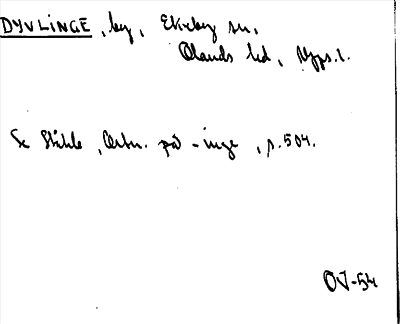 DYVLINGE, by, Ekeby sn,
Olands hd, Upps. l.
Se Ståhle, Ortn. på -inge, s. 504.
OJ-54